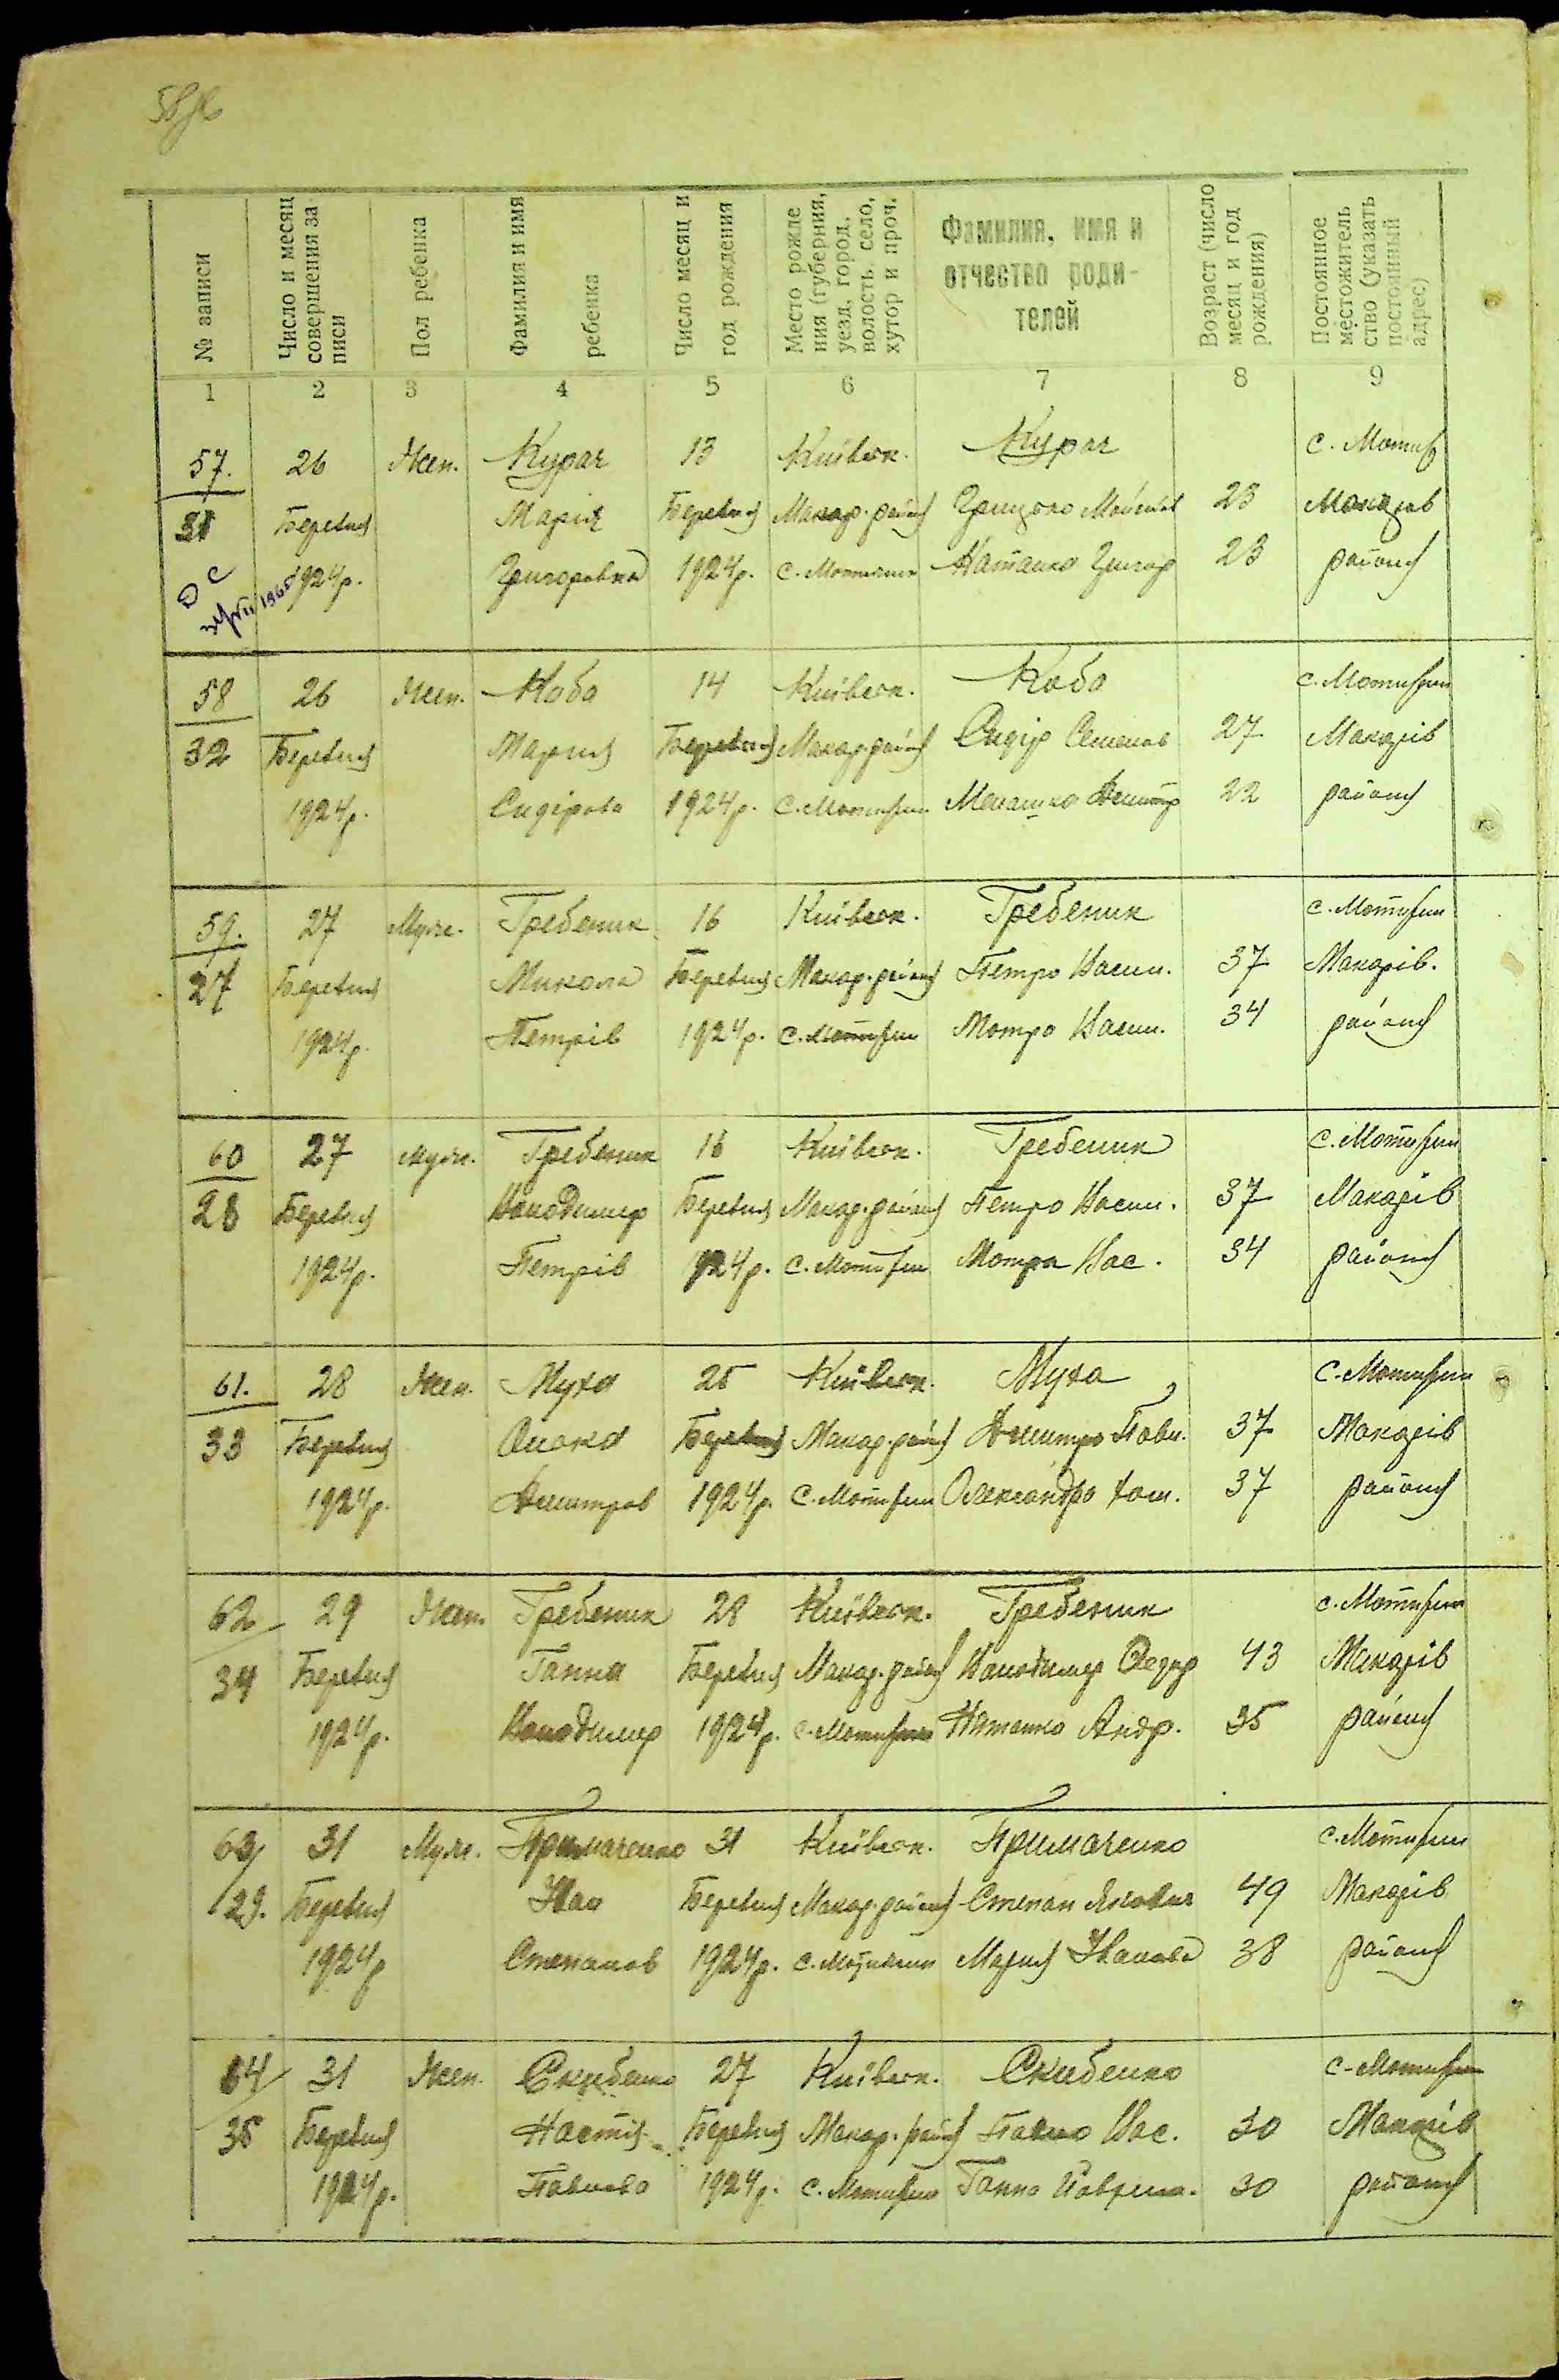 № записи
Число и месяц совершения записи
Пол ребенка
Фамилия и имя ребенка
Число месяц и год рождения
Место рождения (губерния, уезд, город, волость, село, хутор и проч.
Фамилия, имя и отчество родителей
Возраст (число месяц и год рождения)
Постоянное местожительство (указать постоянный адрес)
1 2 3 4 5 6 7 8 9
57. 26 Жен. Курач 13 Київсок. Курач с. Мотиж
31 Березня Марія Березня Макар. район Грицько 23 Макарів
1924р. Григоровна 1924р. с. Мотижин Наталка Григор 23 району
58 26 Жен. Коба 14 Київсок. Коба с. Мотижин
32 Березня Мария Березня Макар район Сидір Семенов 27 Макарів
1924р. Сидірова 1924р. с. Мотижин Мелашка Дмитр 22 району
59. 27 Муж. Гребеник 16 Київсок. Гребеник с. Мотижин
27 Березня Микола Березня Макар. район Петро Васил. 37 Макарів.
1924р. Петрів 1924р. с. Мотижин Мотря Васил. 34 району
60 27 муж. Гребеник 16 Київсок. Гребеник с. Мотижин
28 Березня Володимир Березня Макар. район Петро Васил. 37 Макарів
1924р. Петрів 1924р. с. Мотижин Мотря Вас. 34 району
61. 28 Жен. Муха 25 Київсок. Муха с. Мотижин
33 Березня Березня Макар. район Дмитро Павл. 37 Макарів
1924р. Дмитров 1924р. с. Мотижин Олександра 37 району
62 29 Жен. Гребеник 28 Київсок. Гребеник с. Мотижин
34 Березня Ганна Березня Макар. район Володимир Федор 43 Макарів
1924р. Володимир 1924р. с. Мотижин Наталка Андр. 35 району
63 31 Муж. Примаченко 31 Київсок. Примаченко с. Мотижин
29. Березня Іван Березня Макар. район Степан Якович 49 Макарів
1924р Степанов 1924р. с. Мотижин Мария Іванова 38 району
64 31 Жен. Скибенко 27 Київсок. Скибенко с. Мотижин
35 Березня Настя Березня Макар. район Павло Вас. 30 Макарів
1924р. Павлова 1924р. с. Мотижин Ганна 30 району